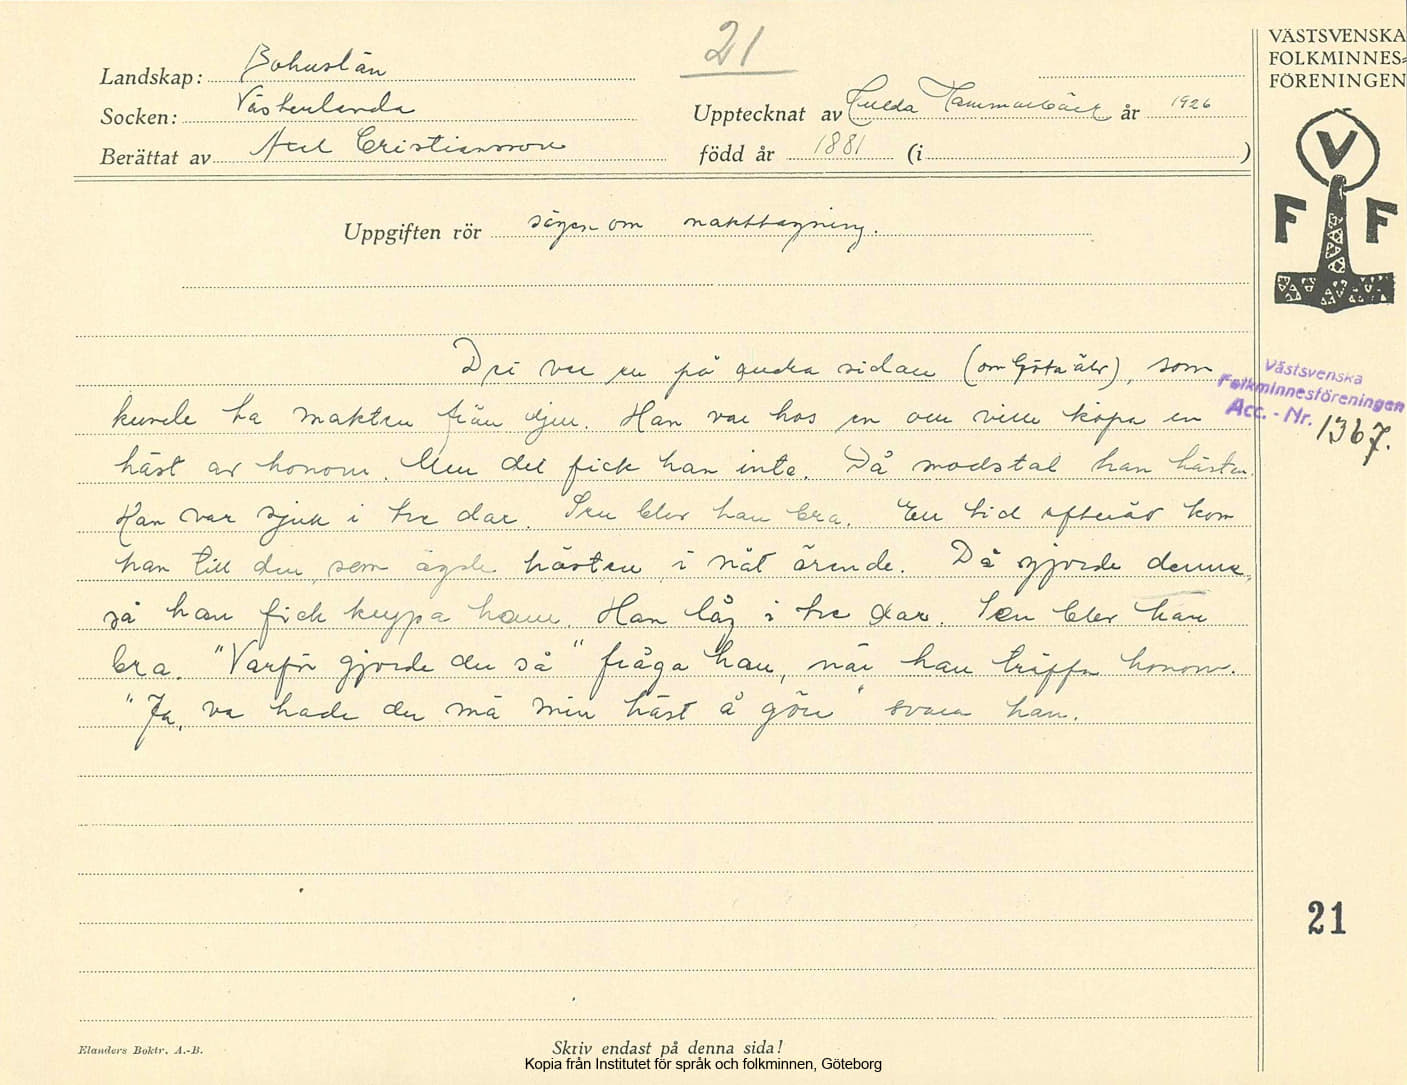 21
VÄSTSVENSKA
FOLKMINNES=
FÖRENINGEN
Landskap: Bohuslän
Socken: Västerlanda Upptecknat av Hulda Hammarbäck år 1926
Berättat av Axel Cristiansson född år 1881 (i )
V
F F
Uppgiften rör sägen om makttagning.
Det var en på andra sidan (om Göta älv), som
Västsvenska
Folkminnesföreningen
Acc. - Nr. 1367.
kunde ta makten från djur. Han var hos en och ville köpa en
häst av honom. Men det fick han inte. Då modstal han hästen.
Han var sjuk i tre dar. Sen blev han bra. En tid efteråt kom
han till den, som ägde hästen, i nåt ärende. Då gjorde denne,
så han fick krypa hem. Han låg i tre dar. Sen blev han
bra. "Varför gjorde du så" fråga han, när han träffa honom.
"Ja, va hade du mä min häst å göra" svara han.
21
Elanders Boktr. A.-B.
Skriv endast på denna sida!
Kopia från Institutet för språk och folkminnen, Göteborg